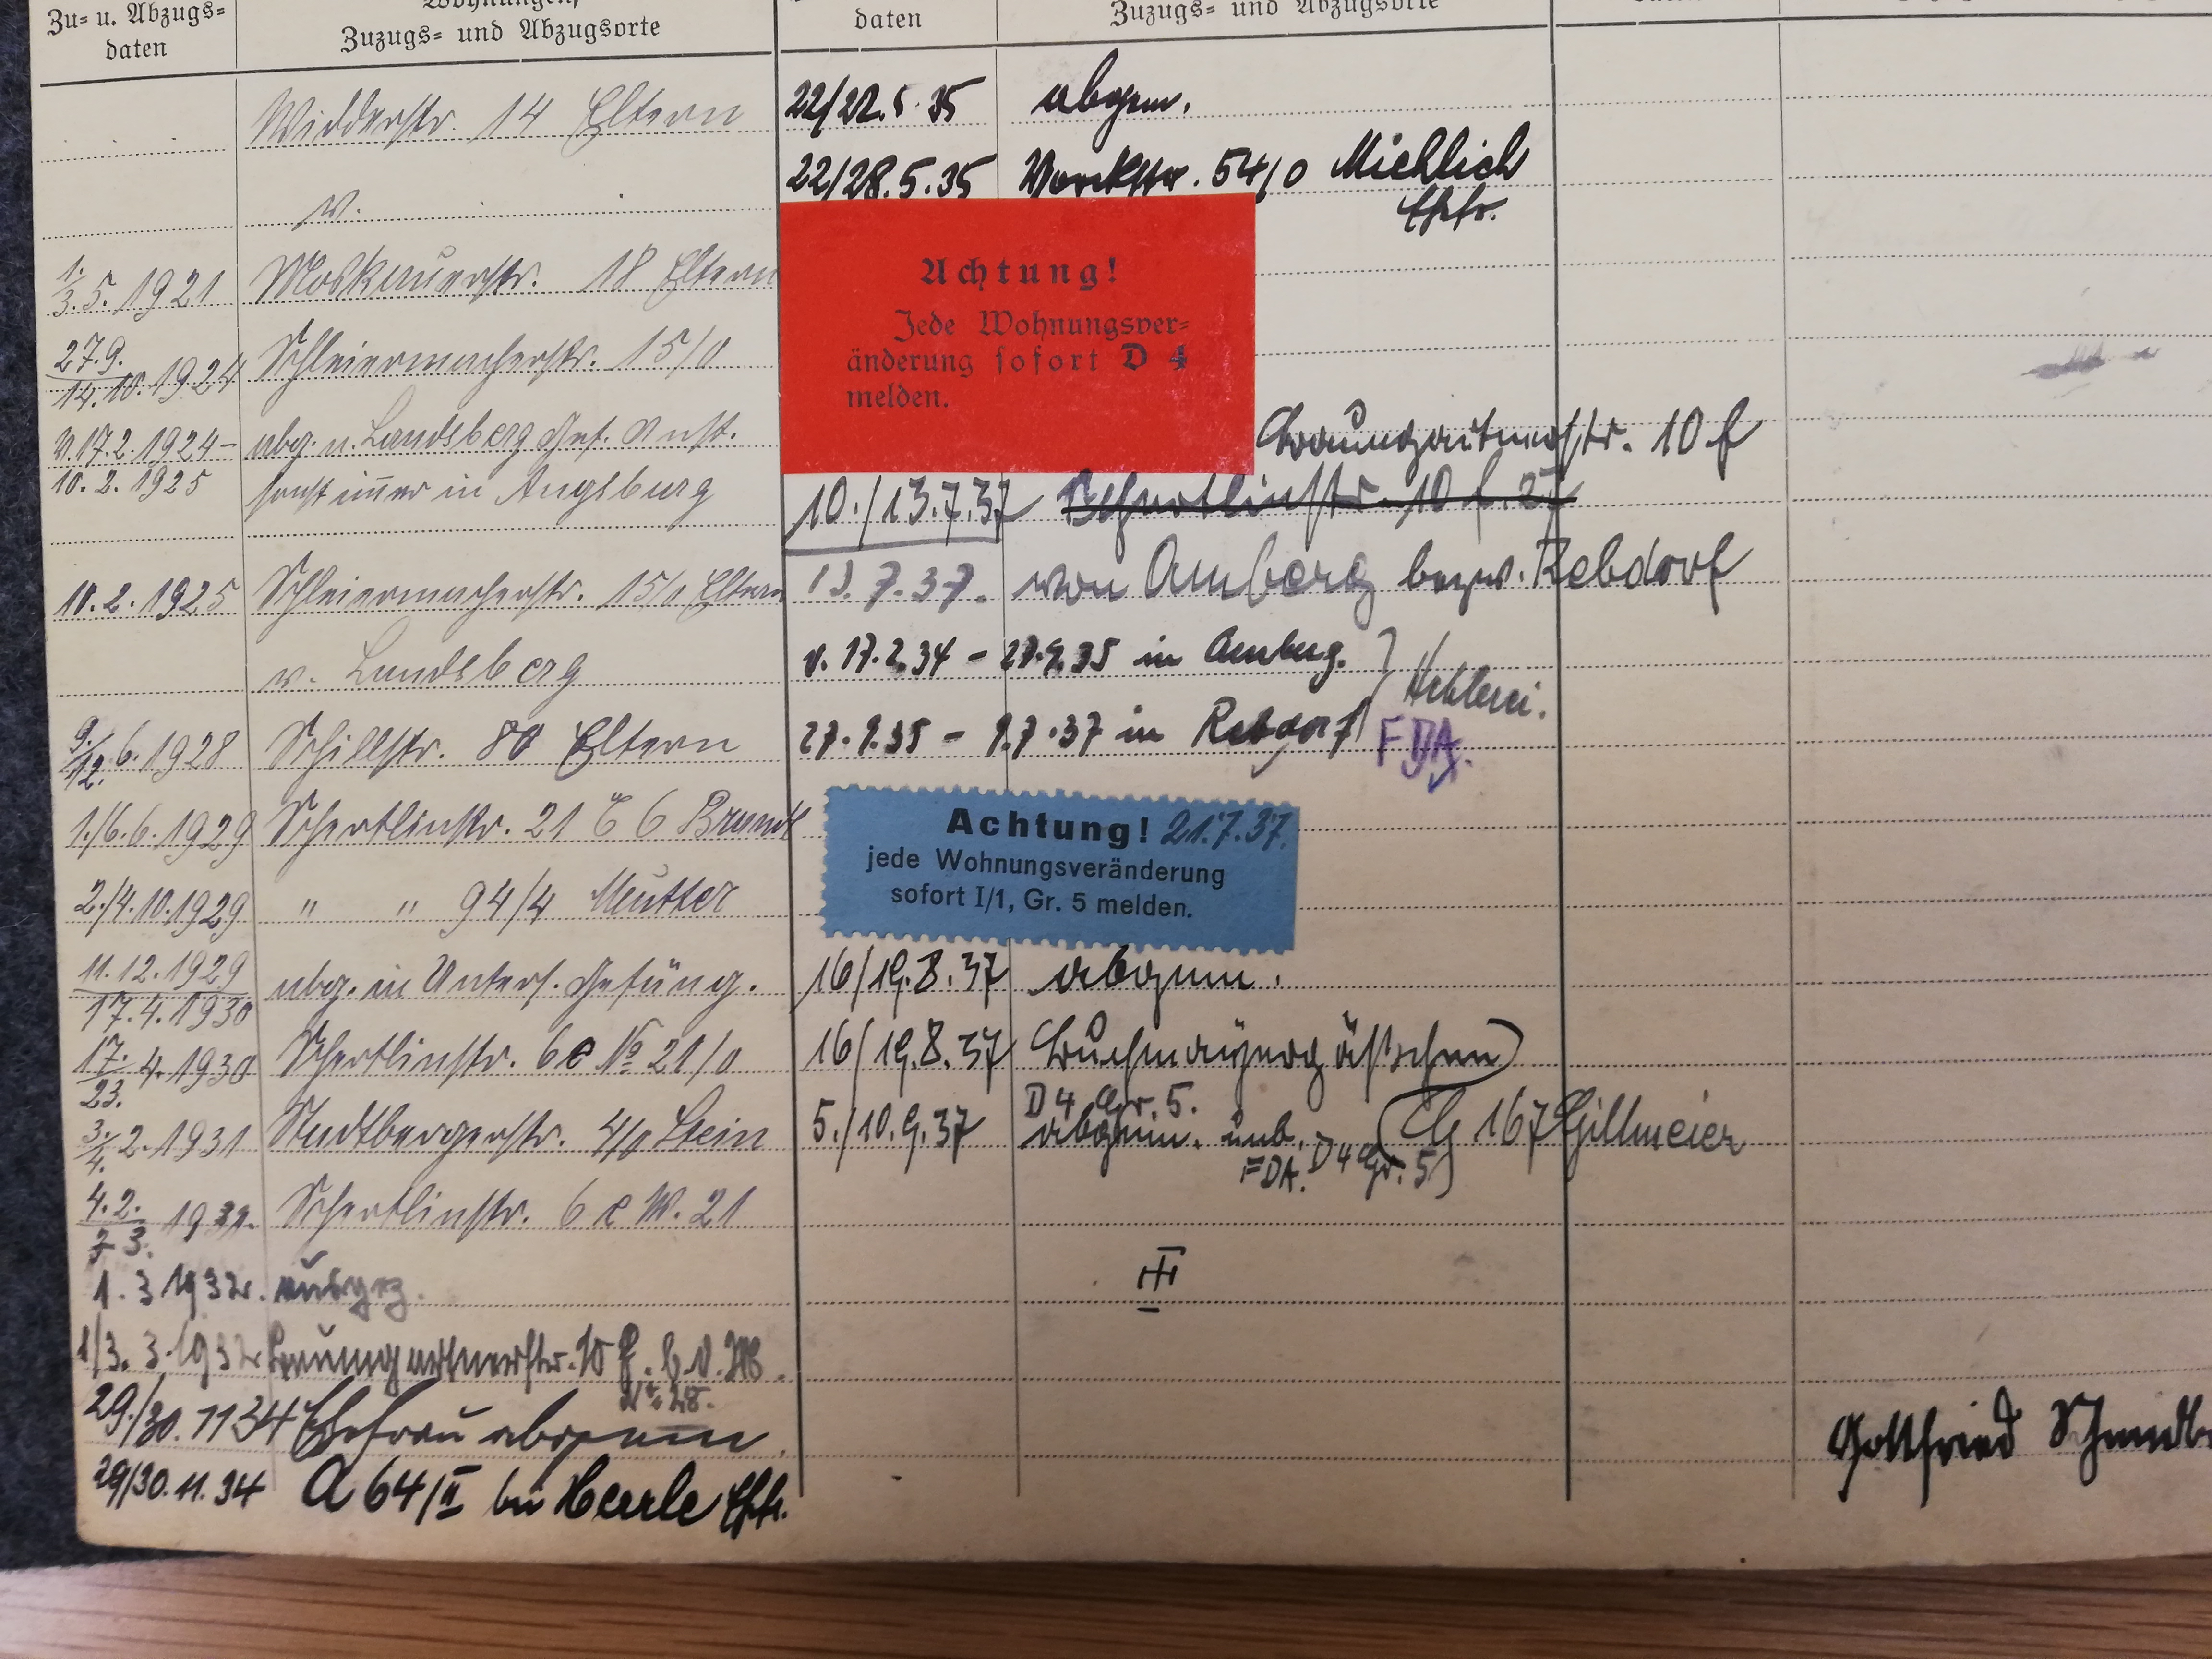 Zu= u. Abzugs=
daten
Wohnungen,
Zuzugs= und Abzugsorte
Widderstr. 14 Eltern
v.
1./3. 5. 1921 Moskauerstr. 18 Eltern
27.9./14.10. 1924 Schleiermacherstr. 15/0
v. 17.2.1924- abg. n. Landsberg Gef. Anst.
10. 2. 1925 sonst immer in Augsburg
10. 2. 1925 Schleiermacherstr. 15/0 Eltern
v. Landsberg
9./12. 6. 1928 Schillstr. 80 Eltern
1./6. 6. 1929 Schertlinstr. 21 6
2./4.10.1929 " " 94/4 Meutter
11.12.1929/17.4.1930 abg. in Unters. Gefäng.
17./23. 4. 1930 Schertlinstr. 6e No 21/0
3./4. 2. 1931 Stadtbergerstr. 4/0 Stein
4.2. Schertlinstr. 6 e W. 21
1. 3 1932.
1/3. 3. 1932 10 f.
No 28.
29./30. 11 34 Ehefrau abgem.
29/30.11.34 A 64/II bei Heerle Ehfr.
daten
Zuzugs= und Abzugsorte
22/22.5.35 abgem.
22/28.5.35 Yorckstr. 54/0 Miehlich
Ehfr.
Achtung!
Jede Wohnungsver=
änderung sofort D 4
melden.
10 f
10./13.7.37 Schertlinstr. 10 f. 27
13.7.37. von Amberg bezw. Rebdorf
v. 17.2.34 - 27.9.35 in Amberg.
Hehlerei.
27.9.35 - 9.7.37 in Rebdorf
FDA.
Achtung! 21.7.37.
jede Wohnungsveränderung
sofort I/1, Gr. 5 melden.
16/19.8.37 abgem.
16/19.8.37
D 4 Gr. 5.
5./10.9.37 abgem. unb. 167
FDA. D 4 Gr. 5)
Gottfried